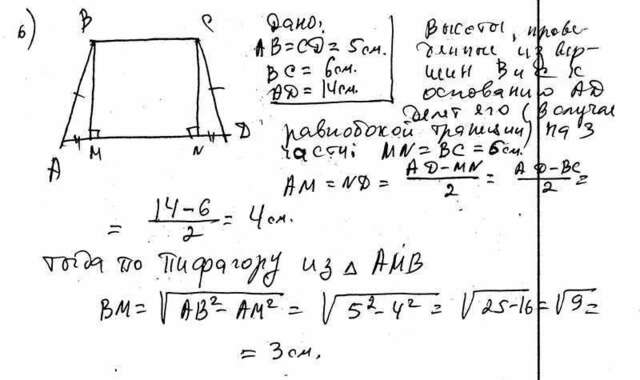 б)
B C
A M N D
Дано:
AB=CD=5см.
BC=6см.
AD=14см.
Высоты, прове-
денные из вер-
шин B и C к
основанию AD
делят его (в случае
равнобокой трапеции) на 3
части: MN=BC=6см.
AM=ND= AD-MN/2 = AD-BC/2 =
= 14-6/2 = 4см.
тогда по Пифагору из △ AMB
BM= √AB²-AM² = √5²-4² = √25-16 = √9 =
= 3см.